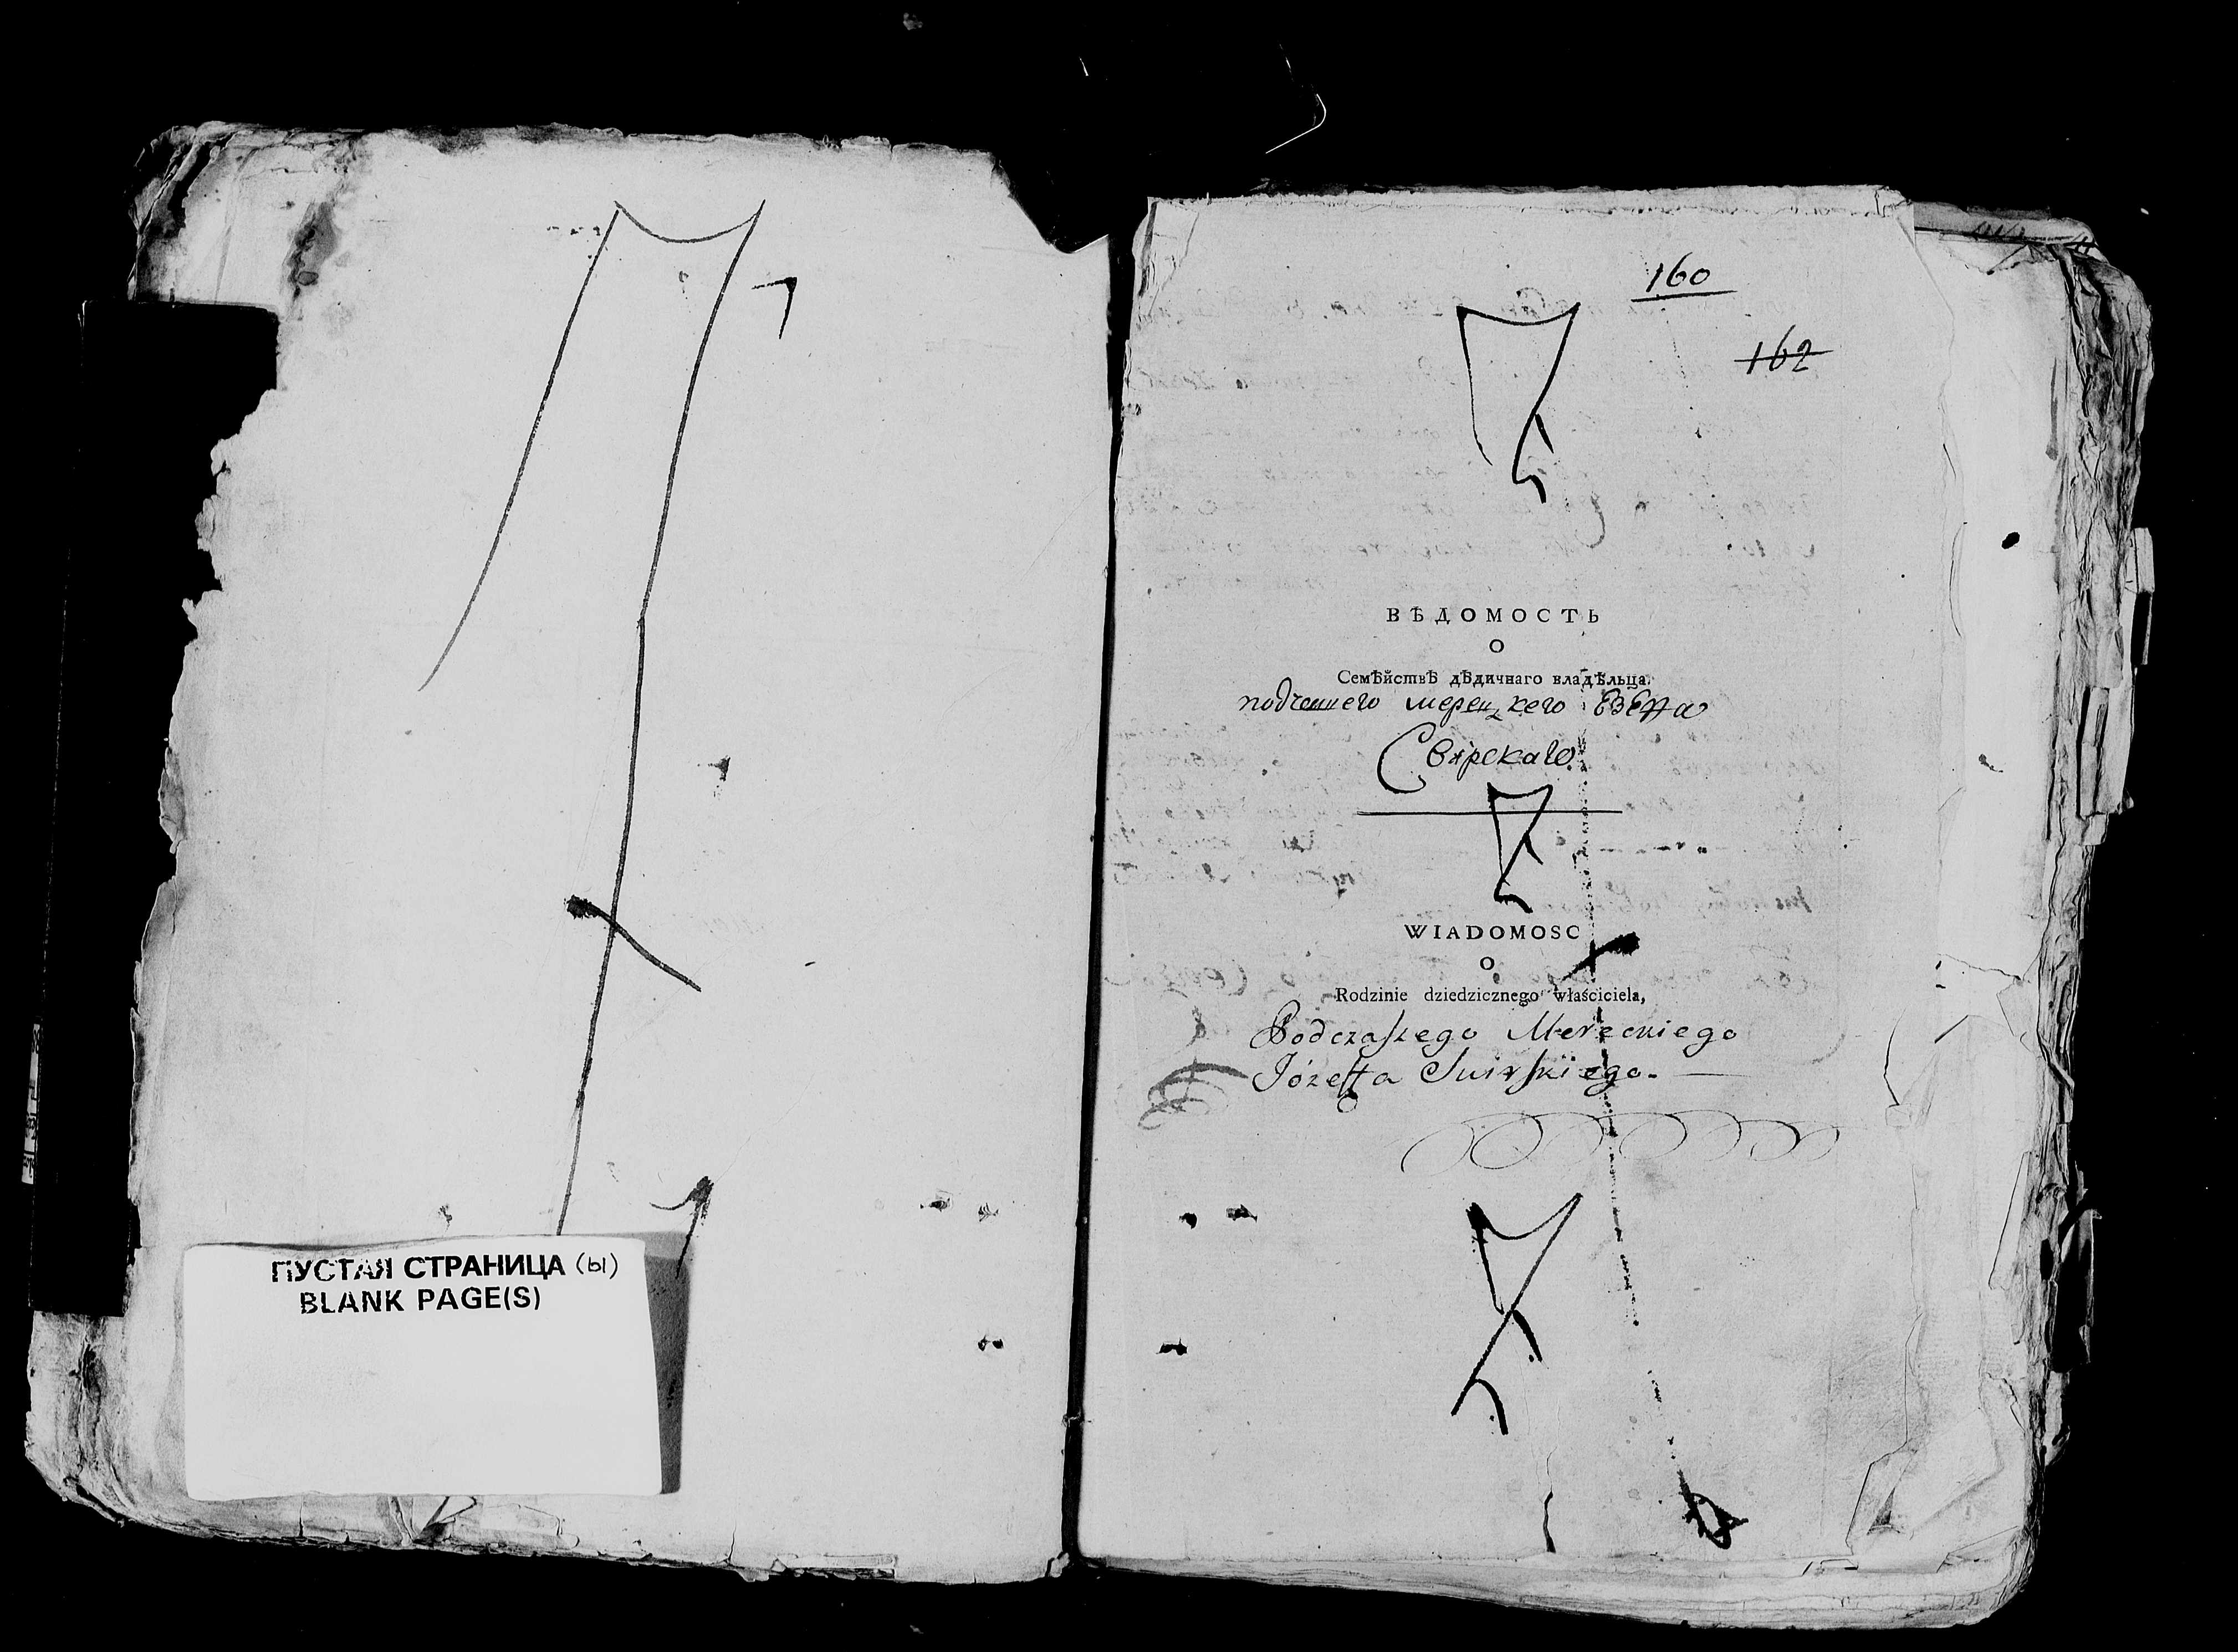 ПУСТАЯ СТРАНИЦА (ы)
BLANK PAGE(S)
160
162
ВѢДОМОСТЬ
О
Семѣйствѣ дѣдичнаго владѣльца.
подчашего мерецкего
Свирскаго
WIADOMOSC
O
Rodzinie dziedzicznego właściciela,
Podczaszego Mereckiego
Józeffa Swirskiego.